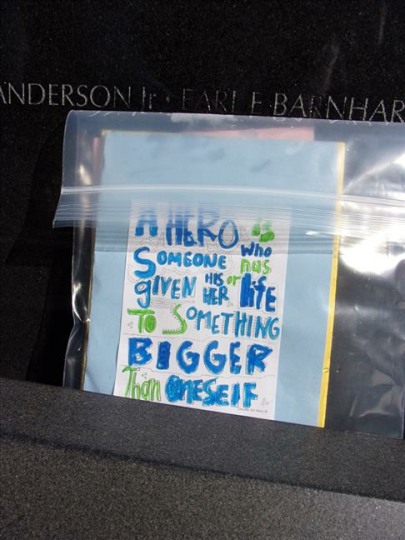 ANDERSON Jr · EARL E BARNHAR
A HERO is
SOMEONE who has
gIVEN HIS or HER life
TO SOMETHING
BIGGER
Than ONESElF